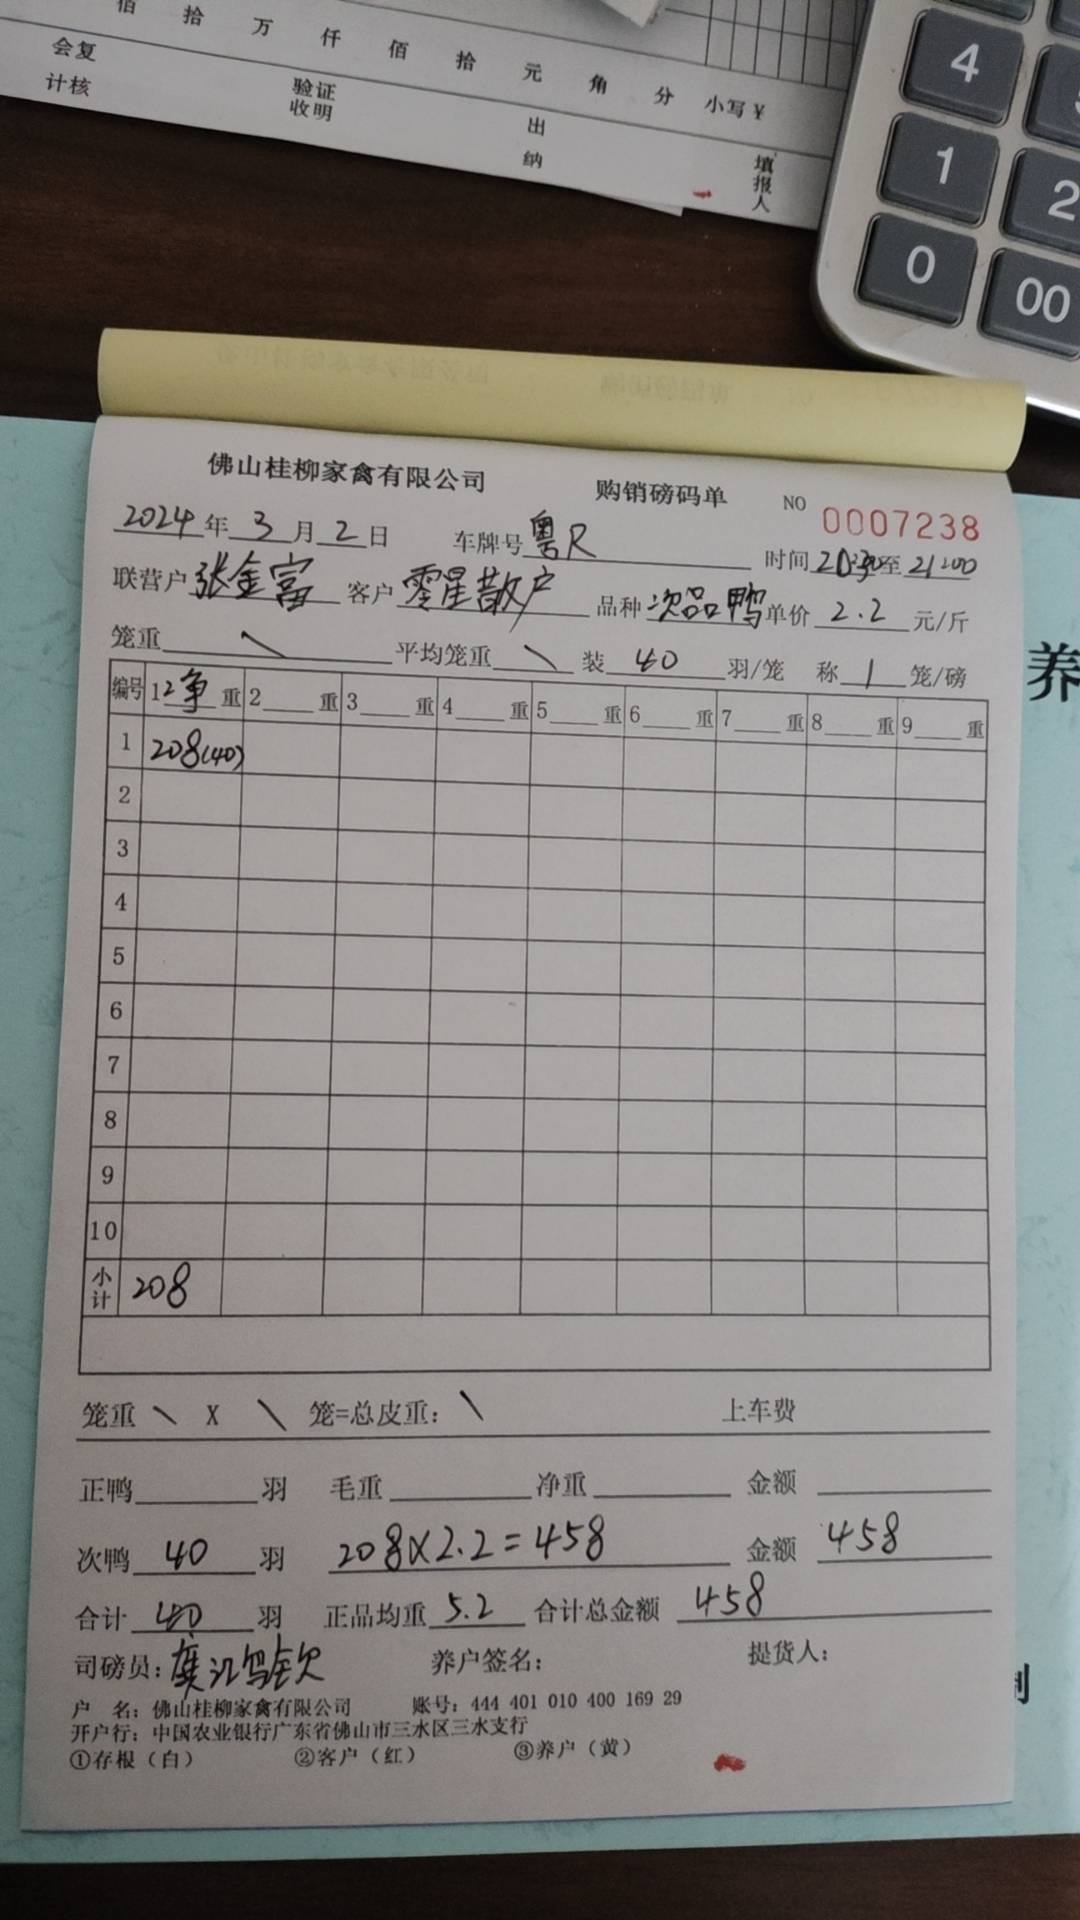 佰 拾 万 仟 佰 拾 元 角 分 小写¥
会计 复核 验收 证明 出纳 填报人
4
1 2
0 00
佛山桂柳家禽有限公司 购销磅码单 NO 0007238
2024年3月2日 车牌号粤R 时间 至21:00
联营户张金富 客户零星散户 品种次品鸭 单价2.2元/斤
笼重\ 平均笼重\ 装40羽/笼 称1笼/磅
编号 1 净重 2 重 3 重 4 重 5 重 6 重 7 重 8 重 9 重
1 208(40)
2
3
4
5
6
7
8
9
10
小计 208
笼重 \ X \ 笼=总皮重: \ 上车费
正鸭 羽 毛重 净重 金额
次鸭 40 羽 208×2.2=458 金额 458
合计 40 羽 正品均重 5.2 合计总金额 458
司磅员: 养户签名: 提货人:
户 名: 佛山桂柳家禽有限公司 账号: 444 401 010 400 169 29
开户行: 中国农业银行广东省佛山市三水区三水支行
①存根（白） ②客户（红） ③养户（黄）
养